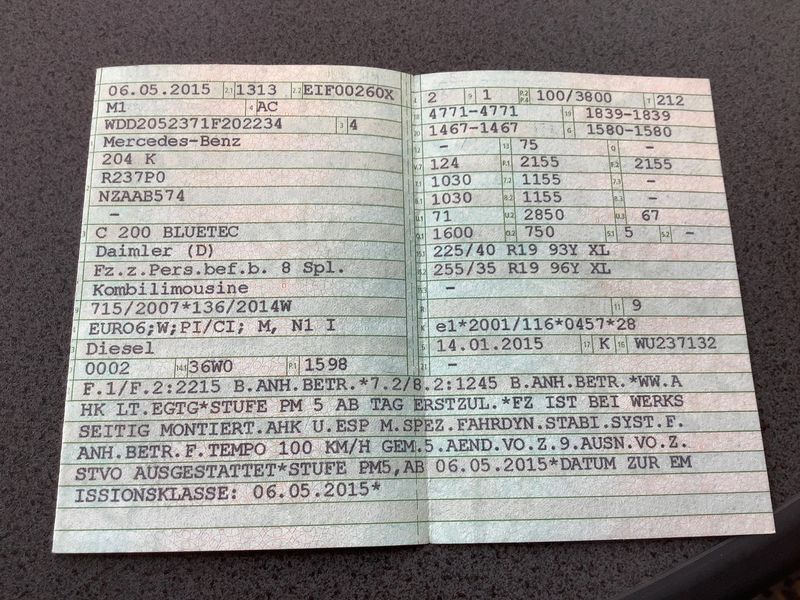 06.05.2015 2.1 1313 2.2 EIF00260X
M1 4 AC
WDD2052371F202234 3 4
Mercedes-Benz
204 K
R237P0
NZAAB574
–
C 200 BLUETEC
Daimler (D)
Fz.z.Pers.bef.b. 8 Spl.
Kombilimousine
715/2007*136/2014W
EURO6;W;PI/CI; M, N1 I
Diesel
0002 14.1 36W0 P.1 1598
2 9 1 P.2 P.4 100/3800 T 212
18 4771-4771 19 1839-1839
20 1467-1467 G 1580-1580
– 13 75 Q –
V.7 124 F.1 2155 F.2 2155
7.1 1030 7.2 1155 7.3 –
8.1 1030 8.2 1155 8.3 –
U.1 71 U.2 2850 U.3 67
O.1 1600 O.2 750 S.1 5 S.2 –
15.1 225/40 R19 93Y XL
15.2 255/35 R19 96Y XL
–
R 11 9
K e1*2001/116*0457*28
6 14.01.2015 17 K 16 WU237132
21 –
F.1/F.2:2215 B.ANH.BETR.*7.2/8.2:1245 B.ANH.BETR.*WW.A
HK LT.EGTG*STUFE PM 5 AB TAG ERSTZUL.*FZ IST BEI WERKS
SEITIG MONTIERT.AHK U.ESP M.SPEZ.FAHRDYN.STABI.SYST.F.
ANH.BETR.F.TEMPO 100 KM/H GEM.5.AEND.VO.Z.9.AUSN.VO.Z.
STVO AUSGESTATTET*STUFE PM5,AB 06.05.2015*DATUM ZUR EM
ISSIONSKLASSE: 06.05.2015*